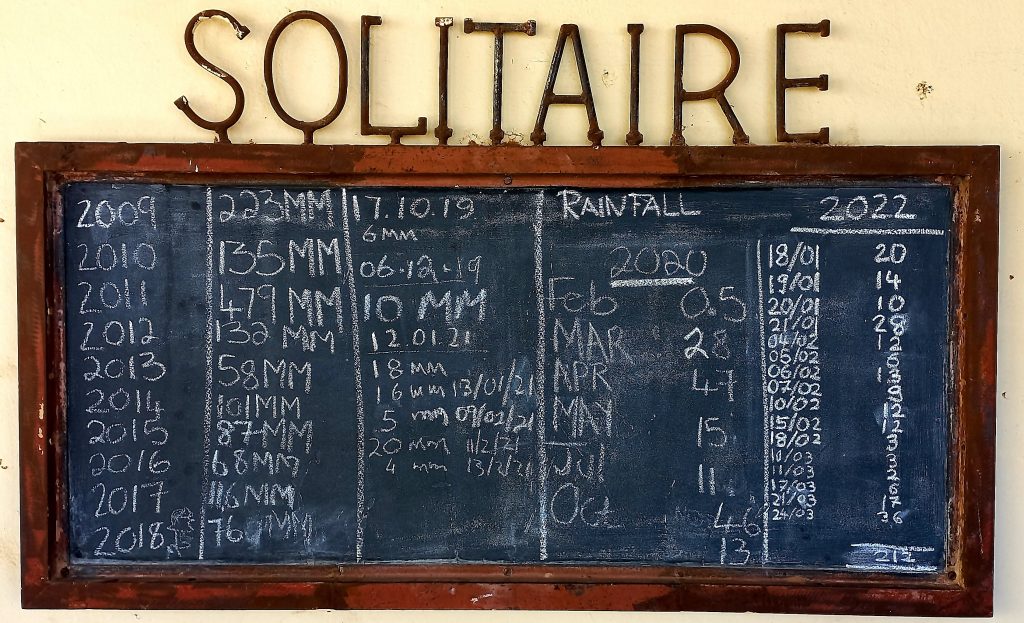 SOLITAIRE
2009 223MM
2010 135MM
2011 479 MM
2012 132 MM
2013 58MM
2014 101MM
2015 87MM
2016 68MM
2017 116MM
2018 76 MM
17.10.19
6 MM
06-12-19
10 MM
12.01.21
18 MM
16 mm 13/01/21
5 mm 09/02/21
20 mm 11/2/21
4 mm 13/2/21
RAINFALL
2020
Feb 0.5
MAR 28
APR 47
MAY
15
Jul 11
Oct 46
13
2022
18/01 20
19/01 14
20/01 10
21/01 28
04/02 12
05/02
06/02
07/02
10/02 12
15/02 12
18/02 3
11/03
11/03 2
17/03 6
21/03
24/03 36
212